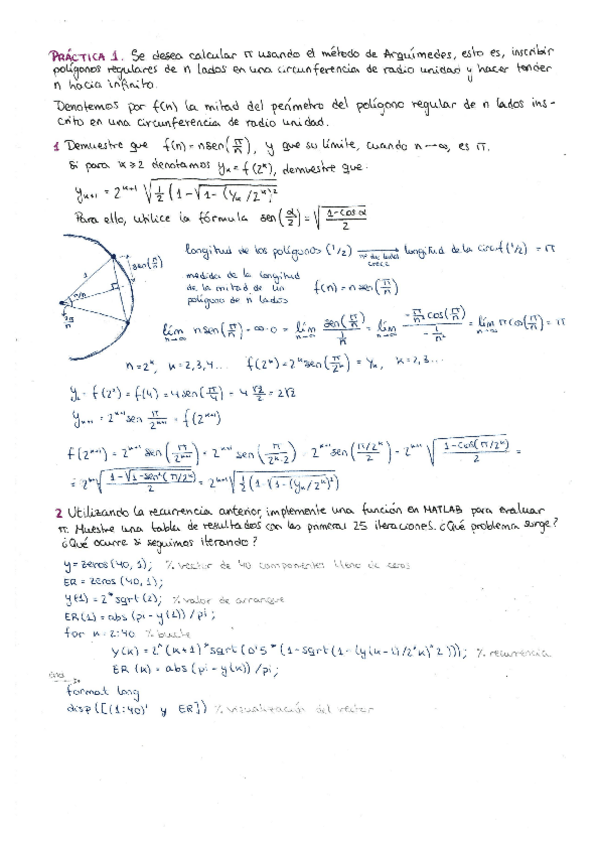 PRÁCTICA 1. Se desea calcular π usando el método de Arquímedes, esto es, inscribir
polígonos regulares de n lados en una circunferencia de radio unidad y hacer tender
n hacia infinito.
Denotemos por f(n) la mitad del perímetro del polígono regular de n lados ins-
crito en una circunferencia de radio unidad.
1 Demuestre que f(n) = n sen(π/n), y que su límite, cuando n→∞, es π.
Si para k ≥ 2 denotamos y_k = f(2^k), demuestre que:
y_{k+1} = 2^{k+1} √(½(1-√(1-(y_k/2^k)²
Para ello, utilice la fórmula sen(α/2) = √((1-cos α)/2)
longitud de los polígonos (1/2) → nº de lados crece → longitud de la circunf (1/2) = π
sen(π/n)
1
π/n
medida de la longitud
de la mitad de un
polígono de n lados
f(n) = n sen(π/n)
lím n→∞ n sen(π/n) = ∞·0 = lím n→∞ sen(π/n)/(1/n) = lím n→∞ (-π/n² cos(π/n))/(-1/n²) = lím n→∞ π cos(π/n) = π
n = 2^k, k = 2,3,4... f(2^k) = 2^k sen(π/2^k) = y_k, k = 2,3...
f(2²) = f(4) = 4 sen(π/4) = 4 √2/2 = 2√2
y_{k+1} = 2^{k+1} sen π/2^{k+1} = f(2^{k+1})
f(2^{k+1}) = 2^{k+1} sen(π/2^{k+1}) = 2^{k+1} sen(π/2^k·2) = 2^{k+1} sen((π/2^k)/2) = 2^{k+1} √((1-cos(π/2^k))/2) =
= 2^{k+1} √((1-√(1-sen²(π/2^k)))/2) = 2^{k+1} √(½(1-√(1-(y_k/2^k)²)
2 Utilizando la recurrencia anterior, implemente una función en MATLAB para evaluar
π. Muestre una tabla de resultados con las primeras 25 iteraciones. ¿Qué problema surge?
¿Qué ocurre si seguimos iterando?
y = zeros(40,1); % vector de 40 componentes lleno de ceros
ER = zeros(40,1);
y(1) = 2*sqrt(2); % valor de arranque
ER(1) = abs(pi-y(1))/pi;
for k = 2:40 % bucle
y(k) = 2^(k+1)*sqrt(0'5*(1-sqrt(1-(y(k-1)/2^k)^2))); % recurrencia
ER(k) = abs(pi-y(k))/pi;
end
format long
disp([(1:40)' y ER]) % visualización del vector